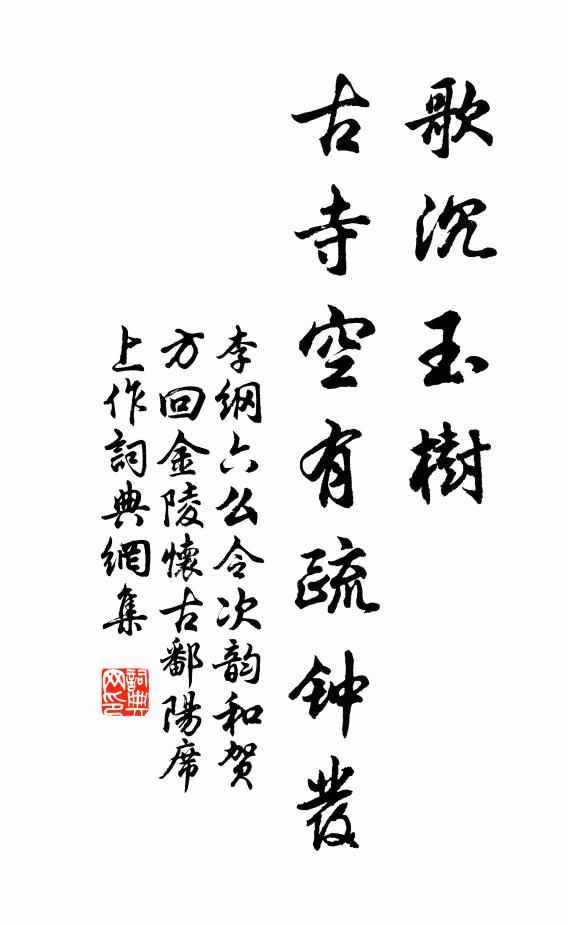 歌沉玉樹
古寺空有疏钟發
李綱六么令次韵和贺
方回金陵懷古鄱陽席
上作詞典網集
詞典网印